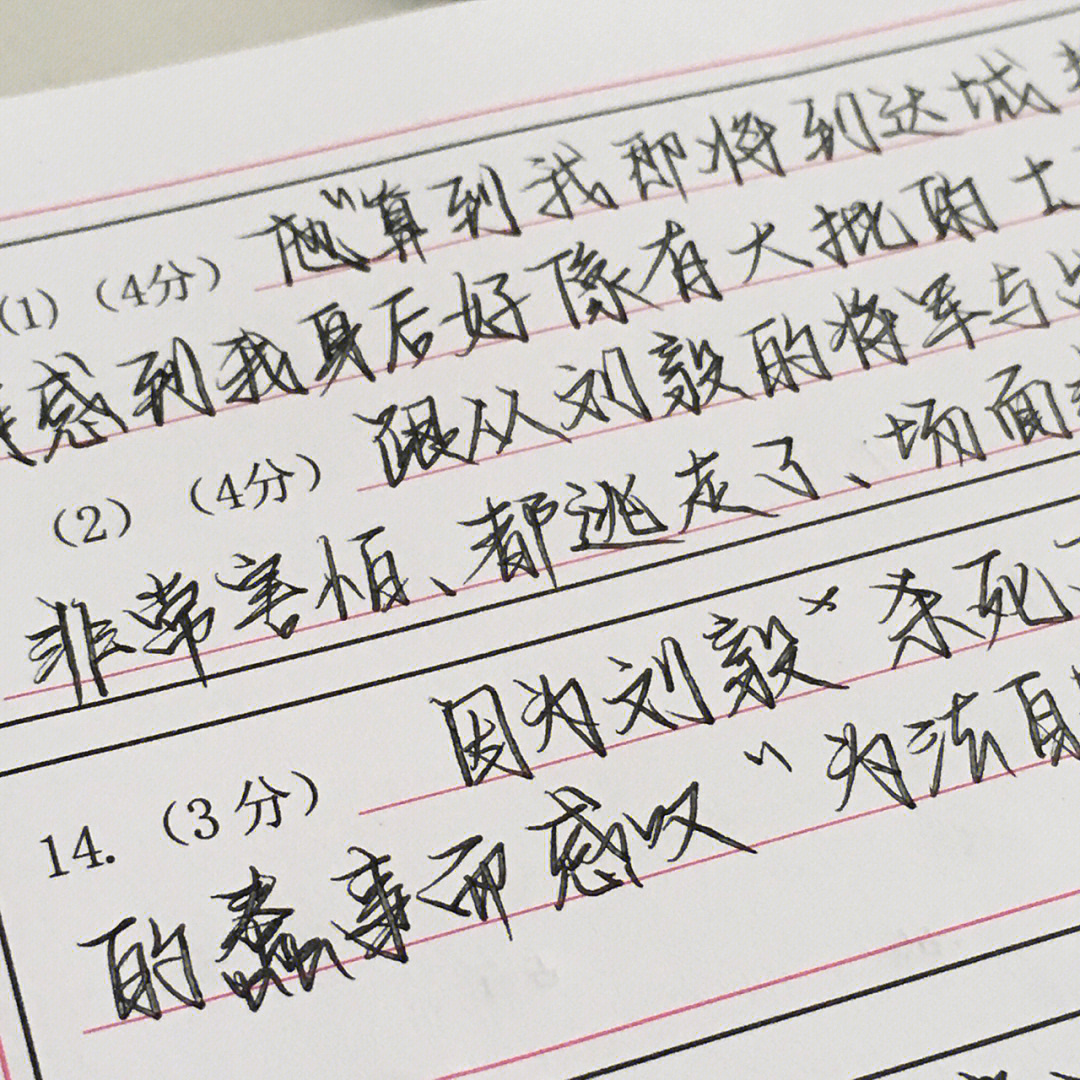 (1)（4分）他“算到我即将到达城
感到我身后好像有大批的士
(2)（4分）跟从刘毅的将军与
非常害怕、都逃走了、场面
14.（3分）因为刘毅“杀死
的蠢事而感叹“为法自